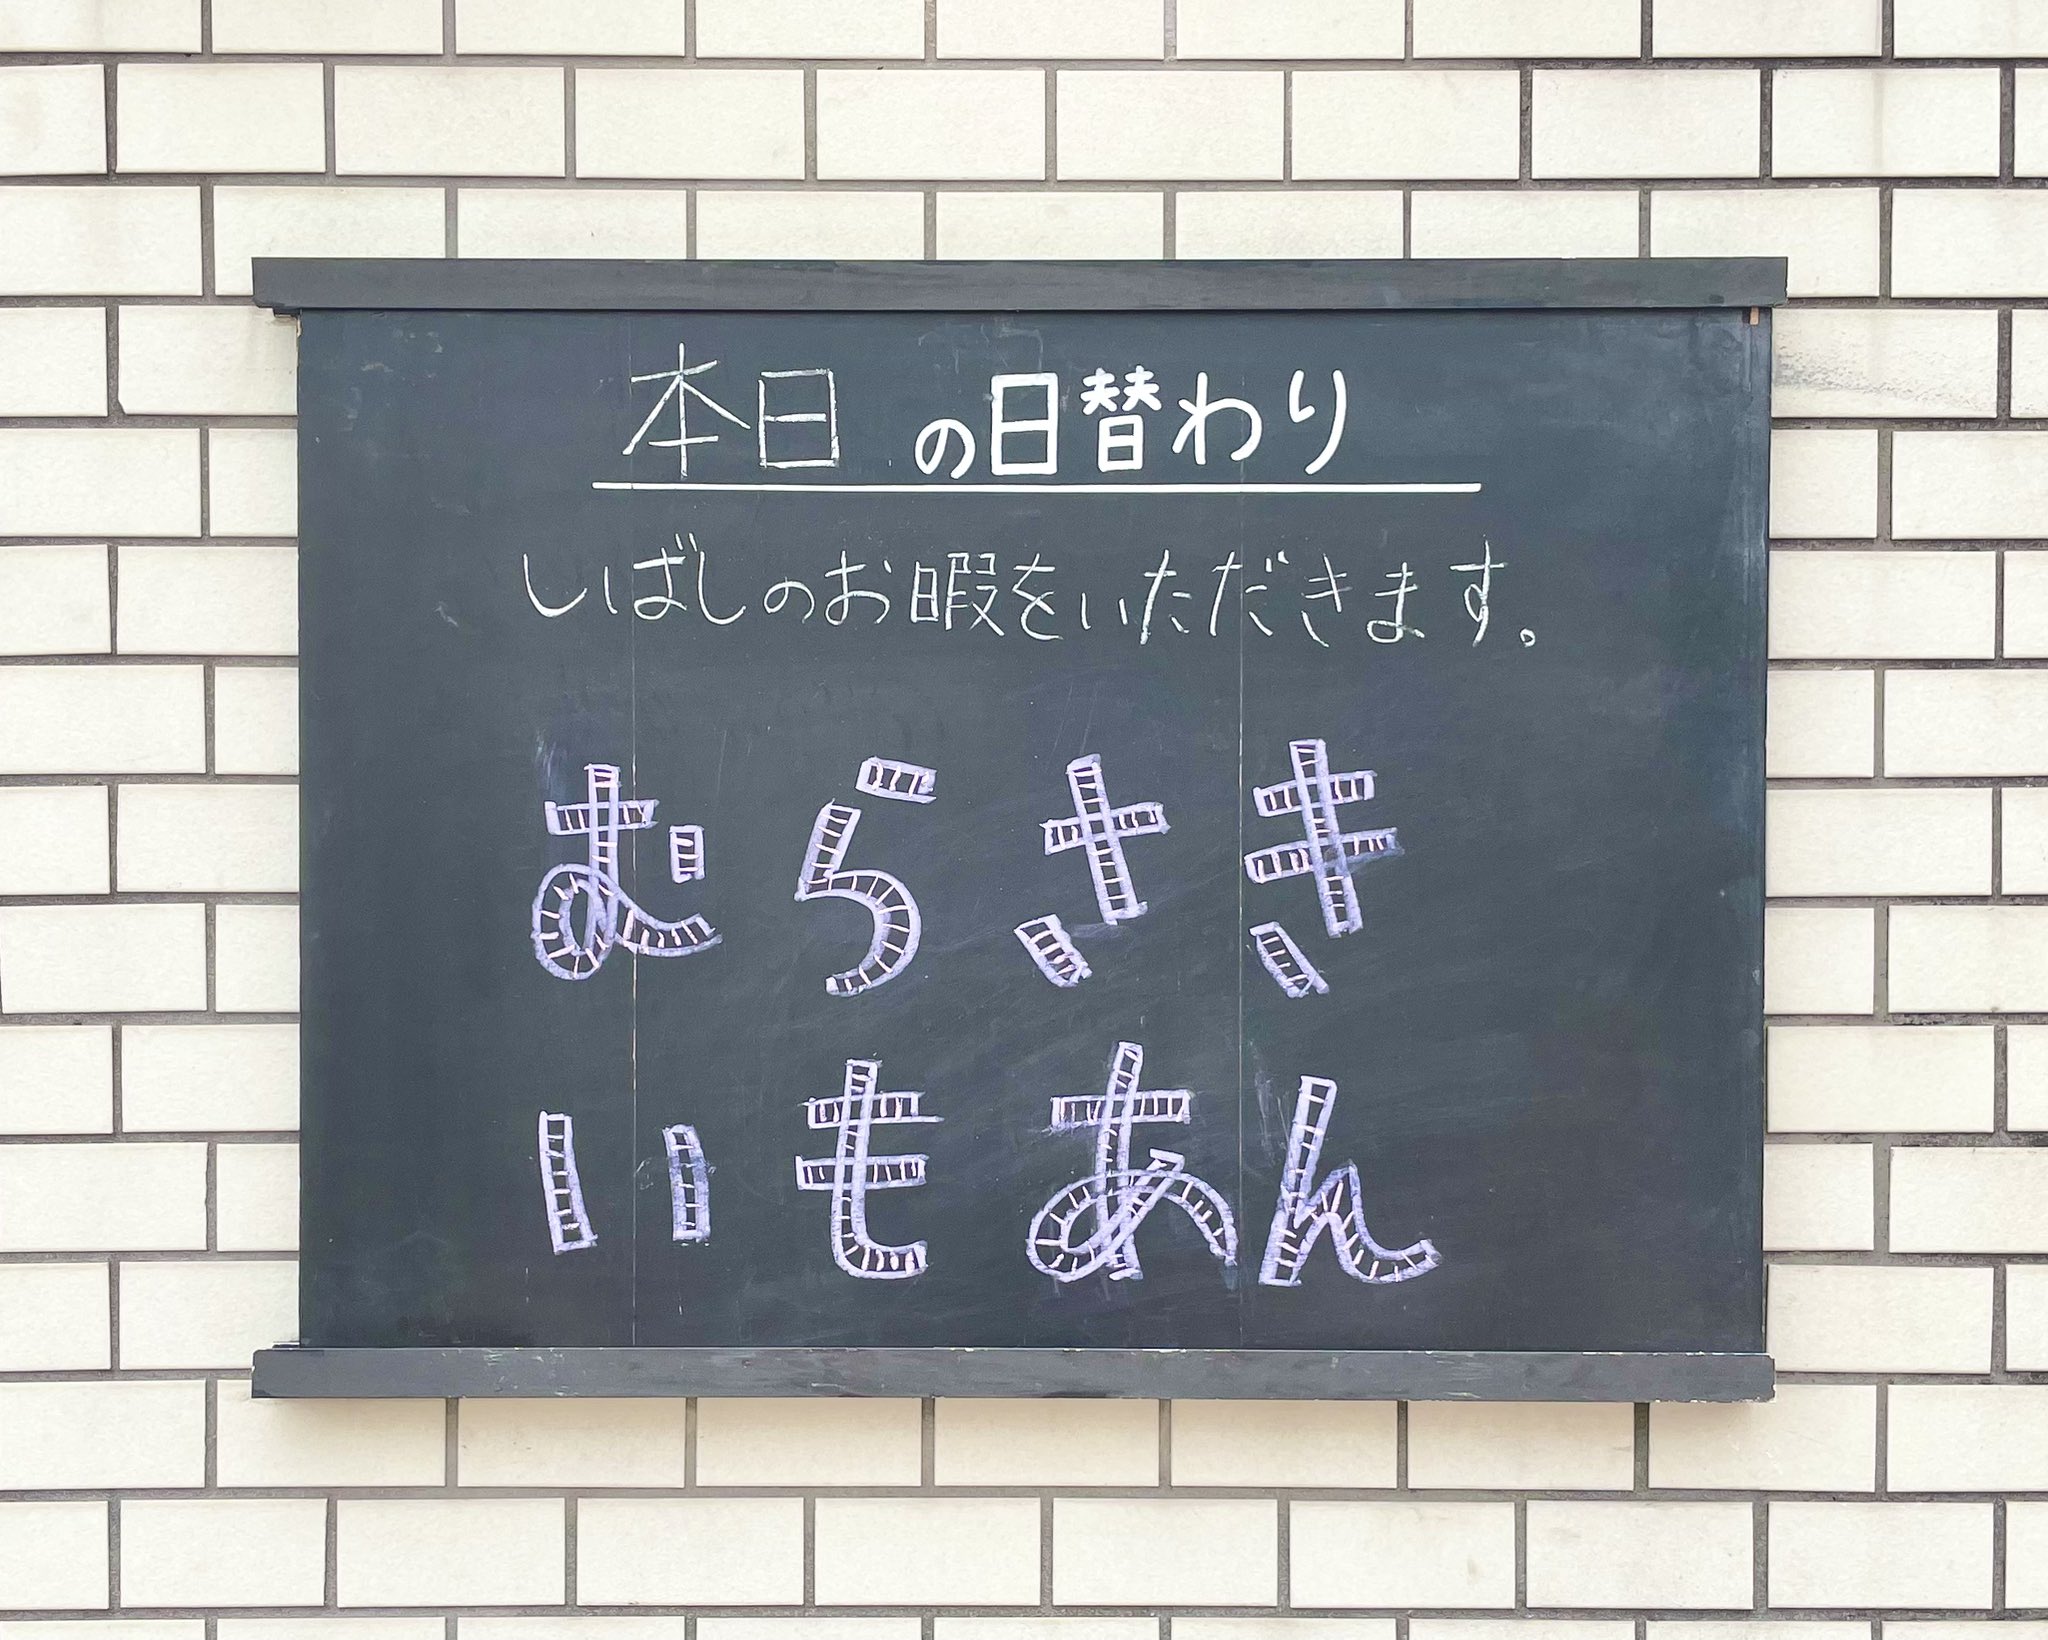 本日の日替わり
しばしのお暇をいただきます。
むらさき
いもあん